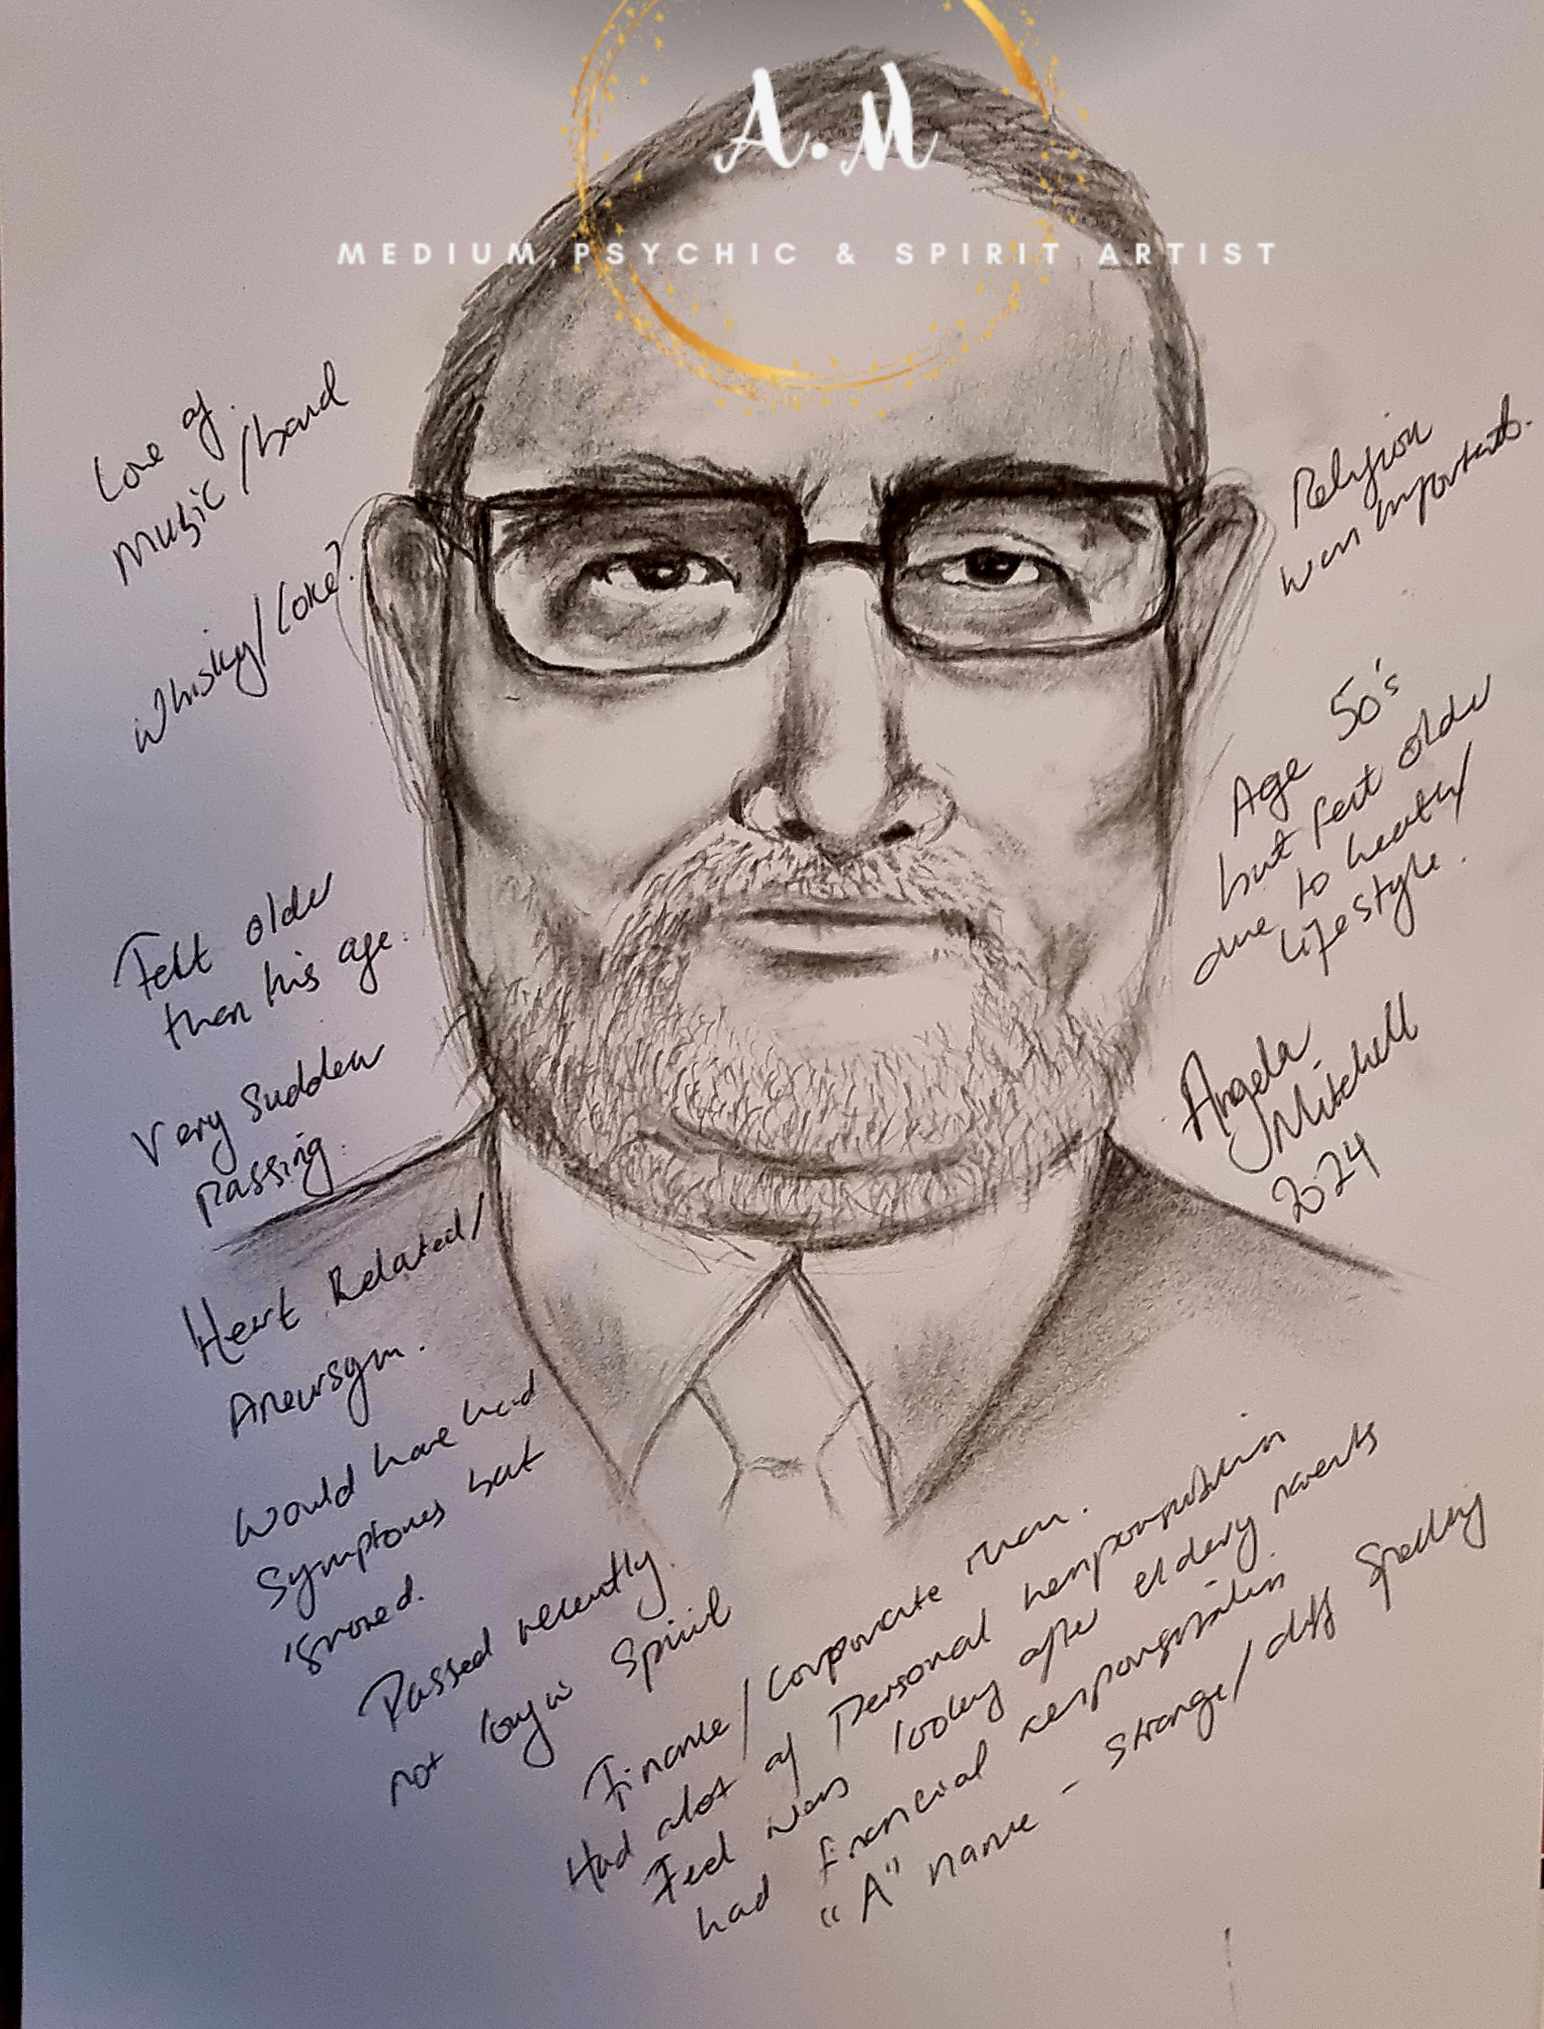 A.M
MEDIUM, PSYCHIC & SPIRIT ARTIST
Love of
Music/band
Whisky/Coke?
Felt older
than his age.
Very Sudden
Passing.
Heart Related/
Aneursym.
Would have had
Symptoms but
ignored.
Passed recently.
not long in Spirit
Finance/Corporate man.
Had alot of Personal
Feel was looking after elderly parents
had financial
"A" name - strange/diff Spelling
Religion
was important.
Age 50's
but felt older
due to health/
lifestyle.
Angela
Mitchell
2024